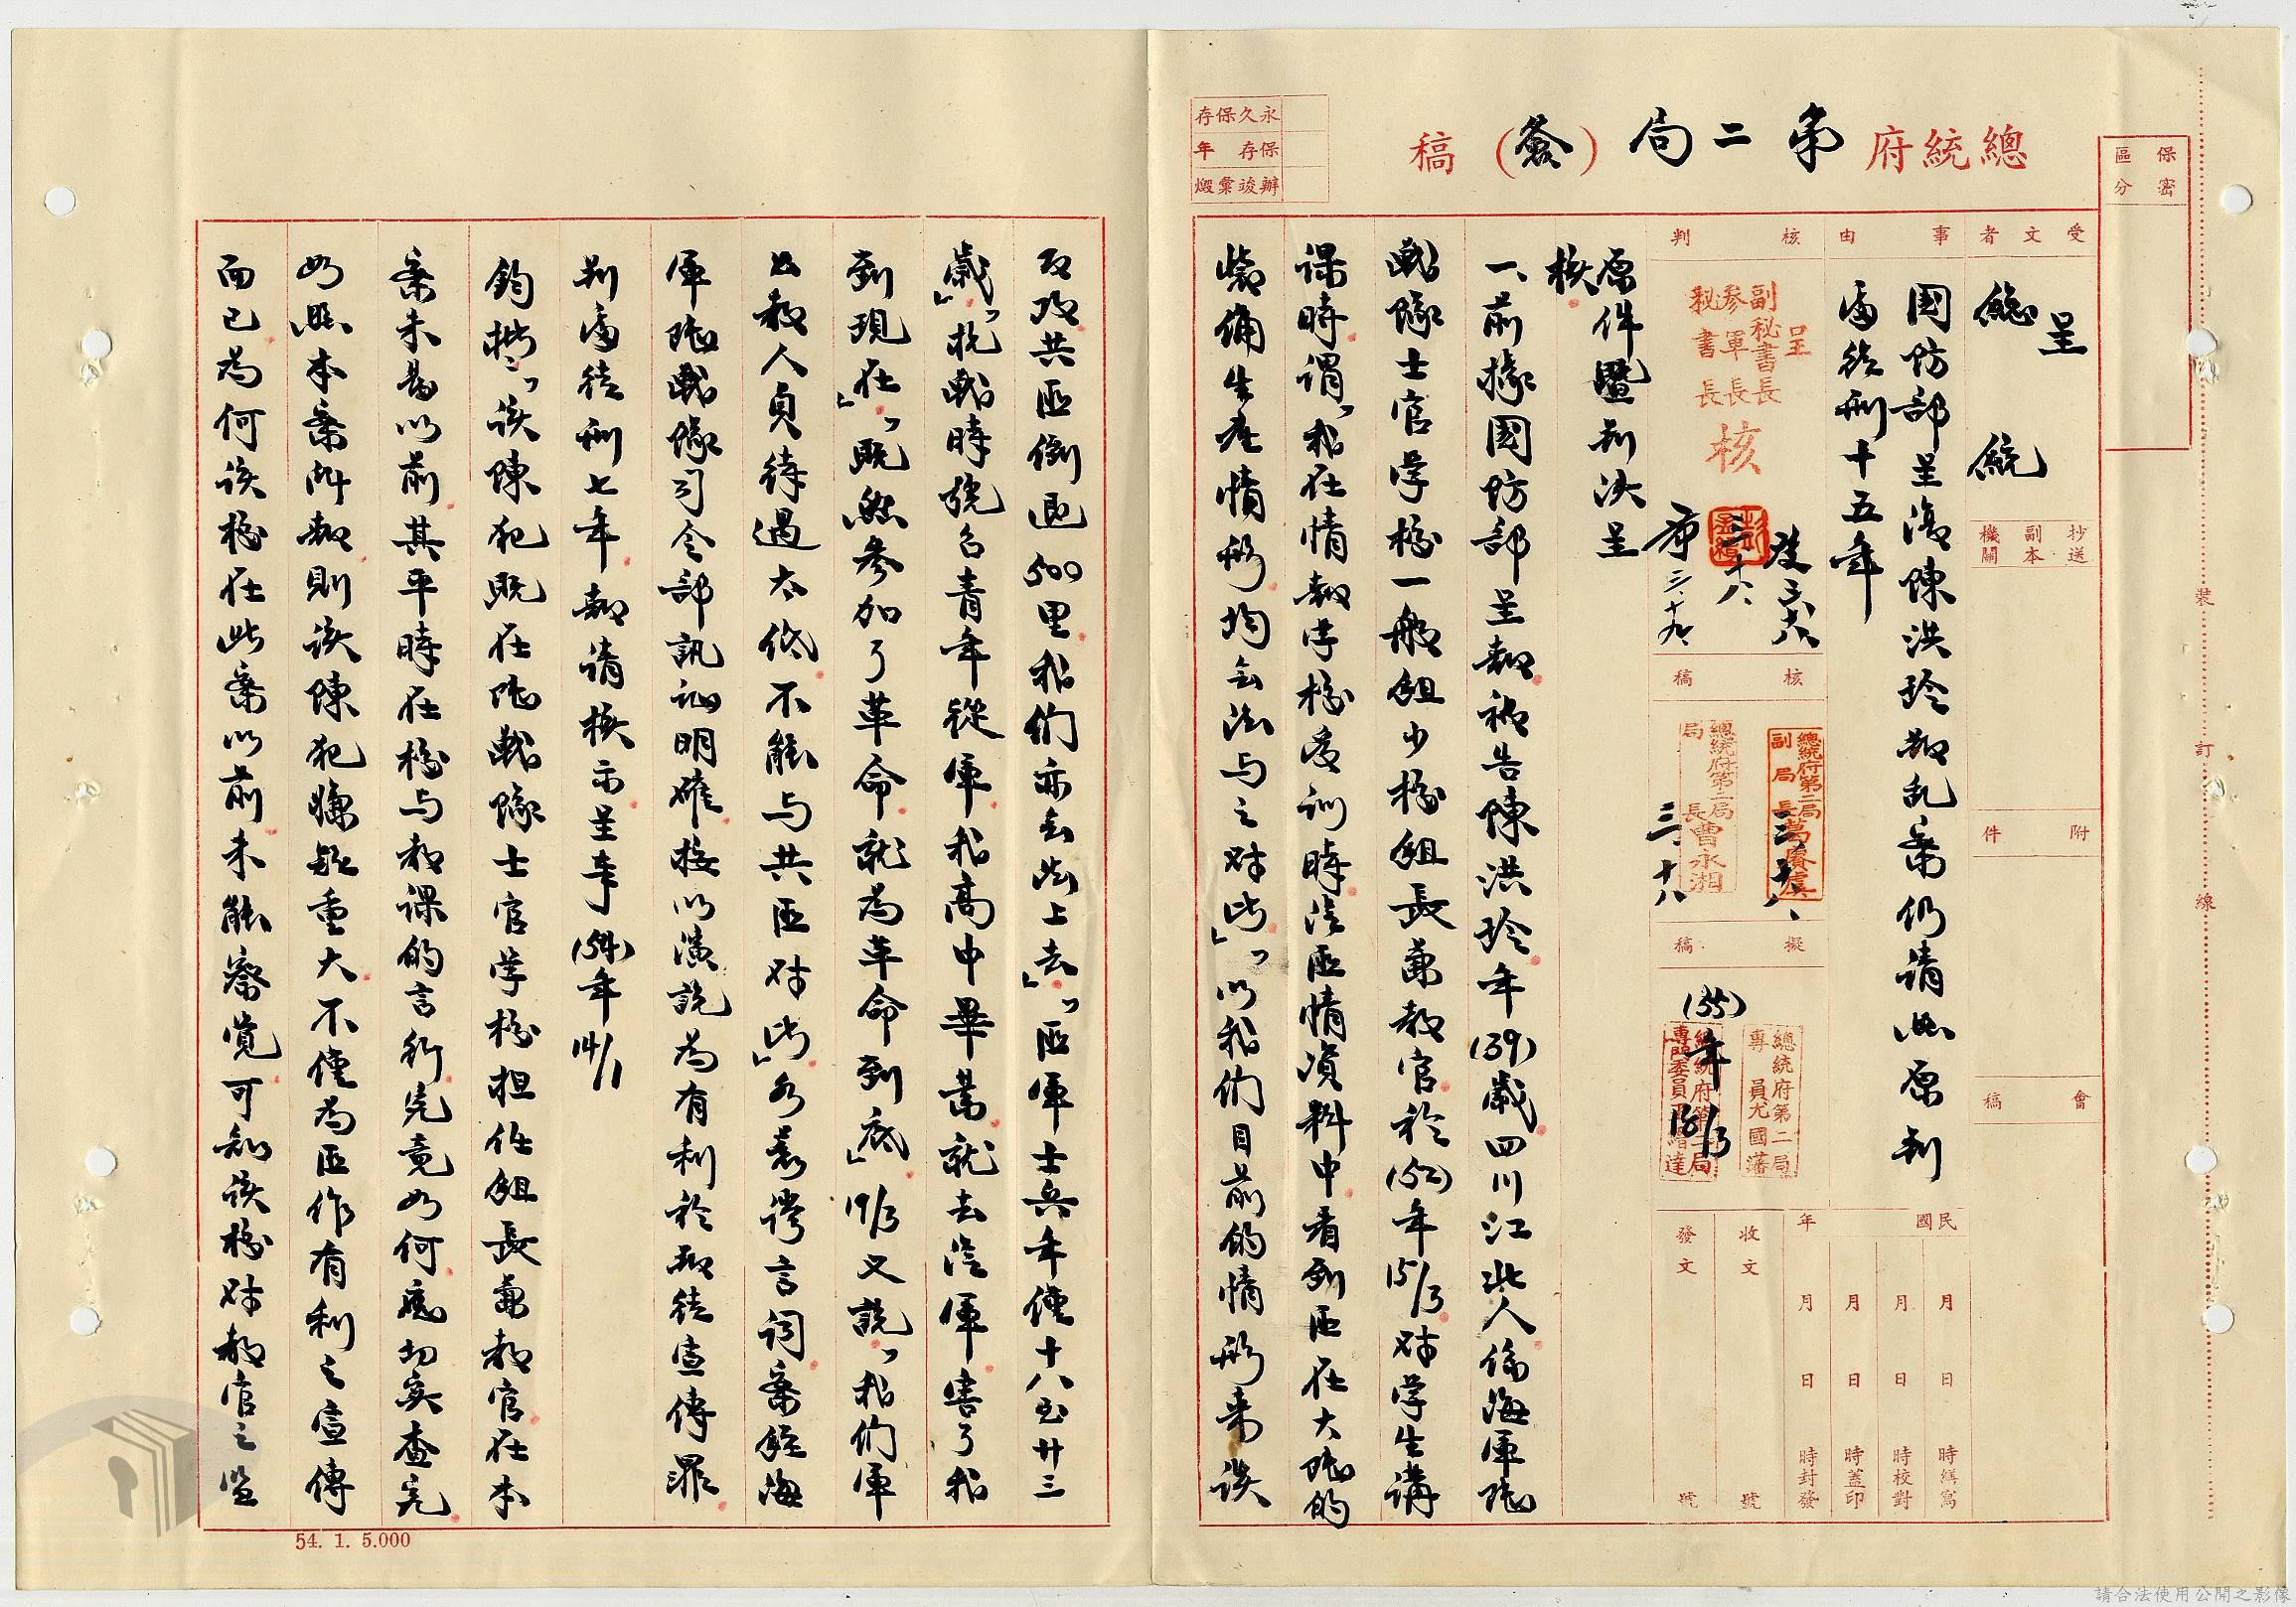 總統府第二局（簽）稿
永久保存
保存　年
辦竣彙燬
保密
區分
受文者
呈
總統
抄送
副本
機關
附件
會稿
事由
國防部呈復陳洪玲叛乱案仍請照原判
處徒刑十五年
核判
呈
副秘書長
參軍長
秘書長
核
三、十八
三、十九
核稿
總統府第二局
副局長
三、十八
總統府第二局
局長曹永湘
三、十八
擬稿
總統府第二局
專員尤國藩
總統府第二局
專門委員
(55)年18/3
民國　年
月　日　時繕寫
月　日　時校對
月　日　時蓋印
月　日　時封發
收文　號
發文　號
原件暨判決呈
核
一、前據國防部呈報被告陳洪玲年(39)歲四川江北人係海軍陸
戰隊士官学校一般組少校組長兼教官於(52)年15/3对学生講
課時謂「我在情報学校受訓時從匪情資料中看到匪在大陸的
裝備生產情形均無法与之对比」「以我们目前的情形來談
反攻共匪倒退500里我们亦無法上去」「匪軍士兵年僅十八至廿三
歲」「抗戰時號召青年從軍我高中畢業就去從軍害了我
到現在」「既然參加了革命就為革命到底」19/3又說「我们軍
公教人員待遇太低不能与共匪对比」各荒謬言詞案經海
軍陸戰隊司令部訊証明確按以演說為有利於叛徒宣傳罪
判處徒刑七年報請核示呈奉(54)年14/1
鈞批「該陳犯既在陸戰隊士官学校担任組長兼教官在本
案未易以前其平時在校与教課的言行究竟如何應切實查究
如照本案所報則該陳犯嫌疑重大不僅為匪作有利之宣傳
而已為何該校在此案以前未能察覚可知該校对教官之監
54. 1. 5.000
裝
訂
線
請合法使用公開之影像